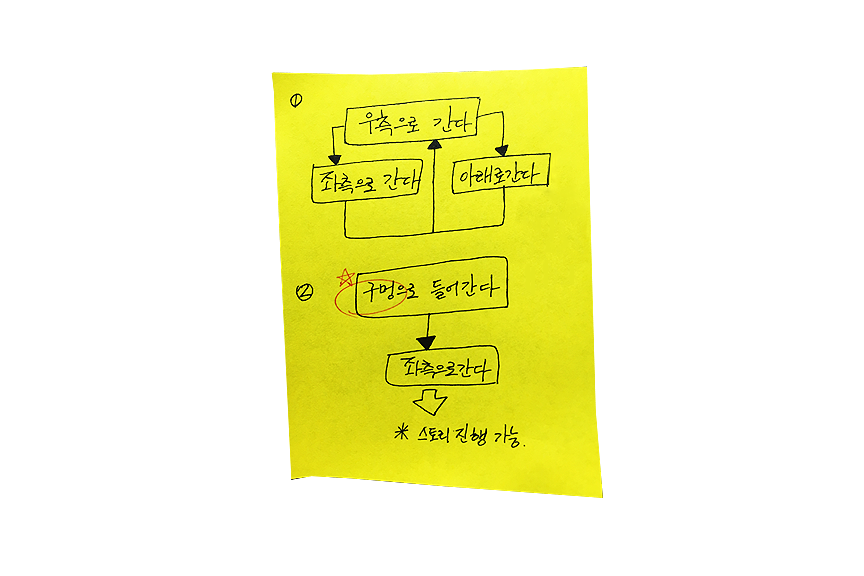 ①
우측으로 간다
좌측으로 간다
아래로간다
②
구멍으로 들어간다
좌측으로간다
* 스토리 진행 가능.